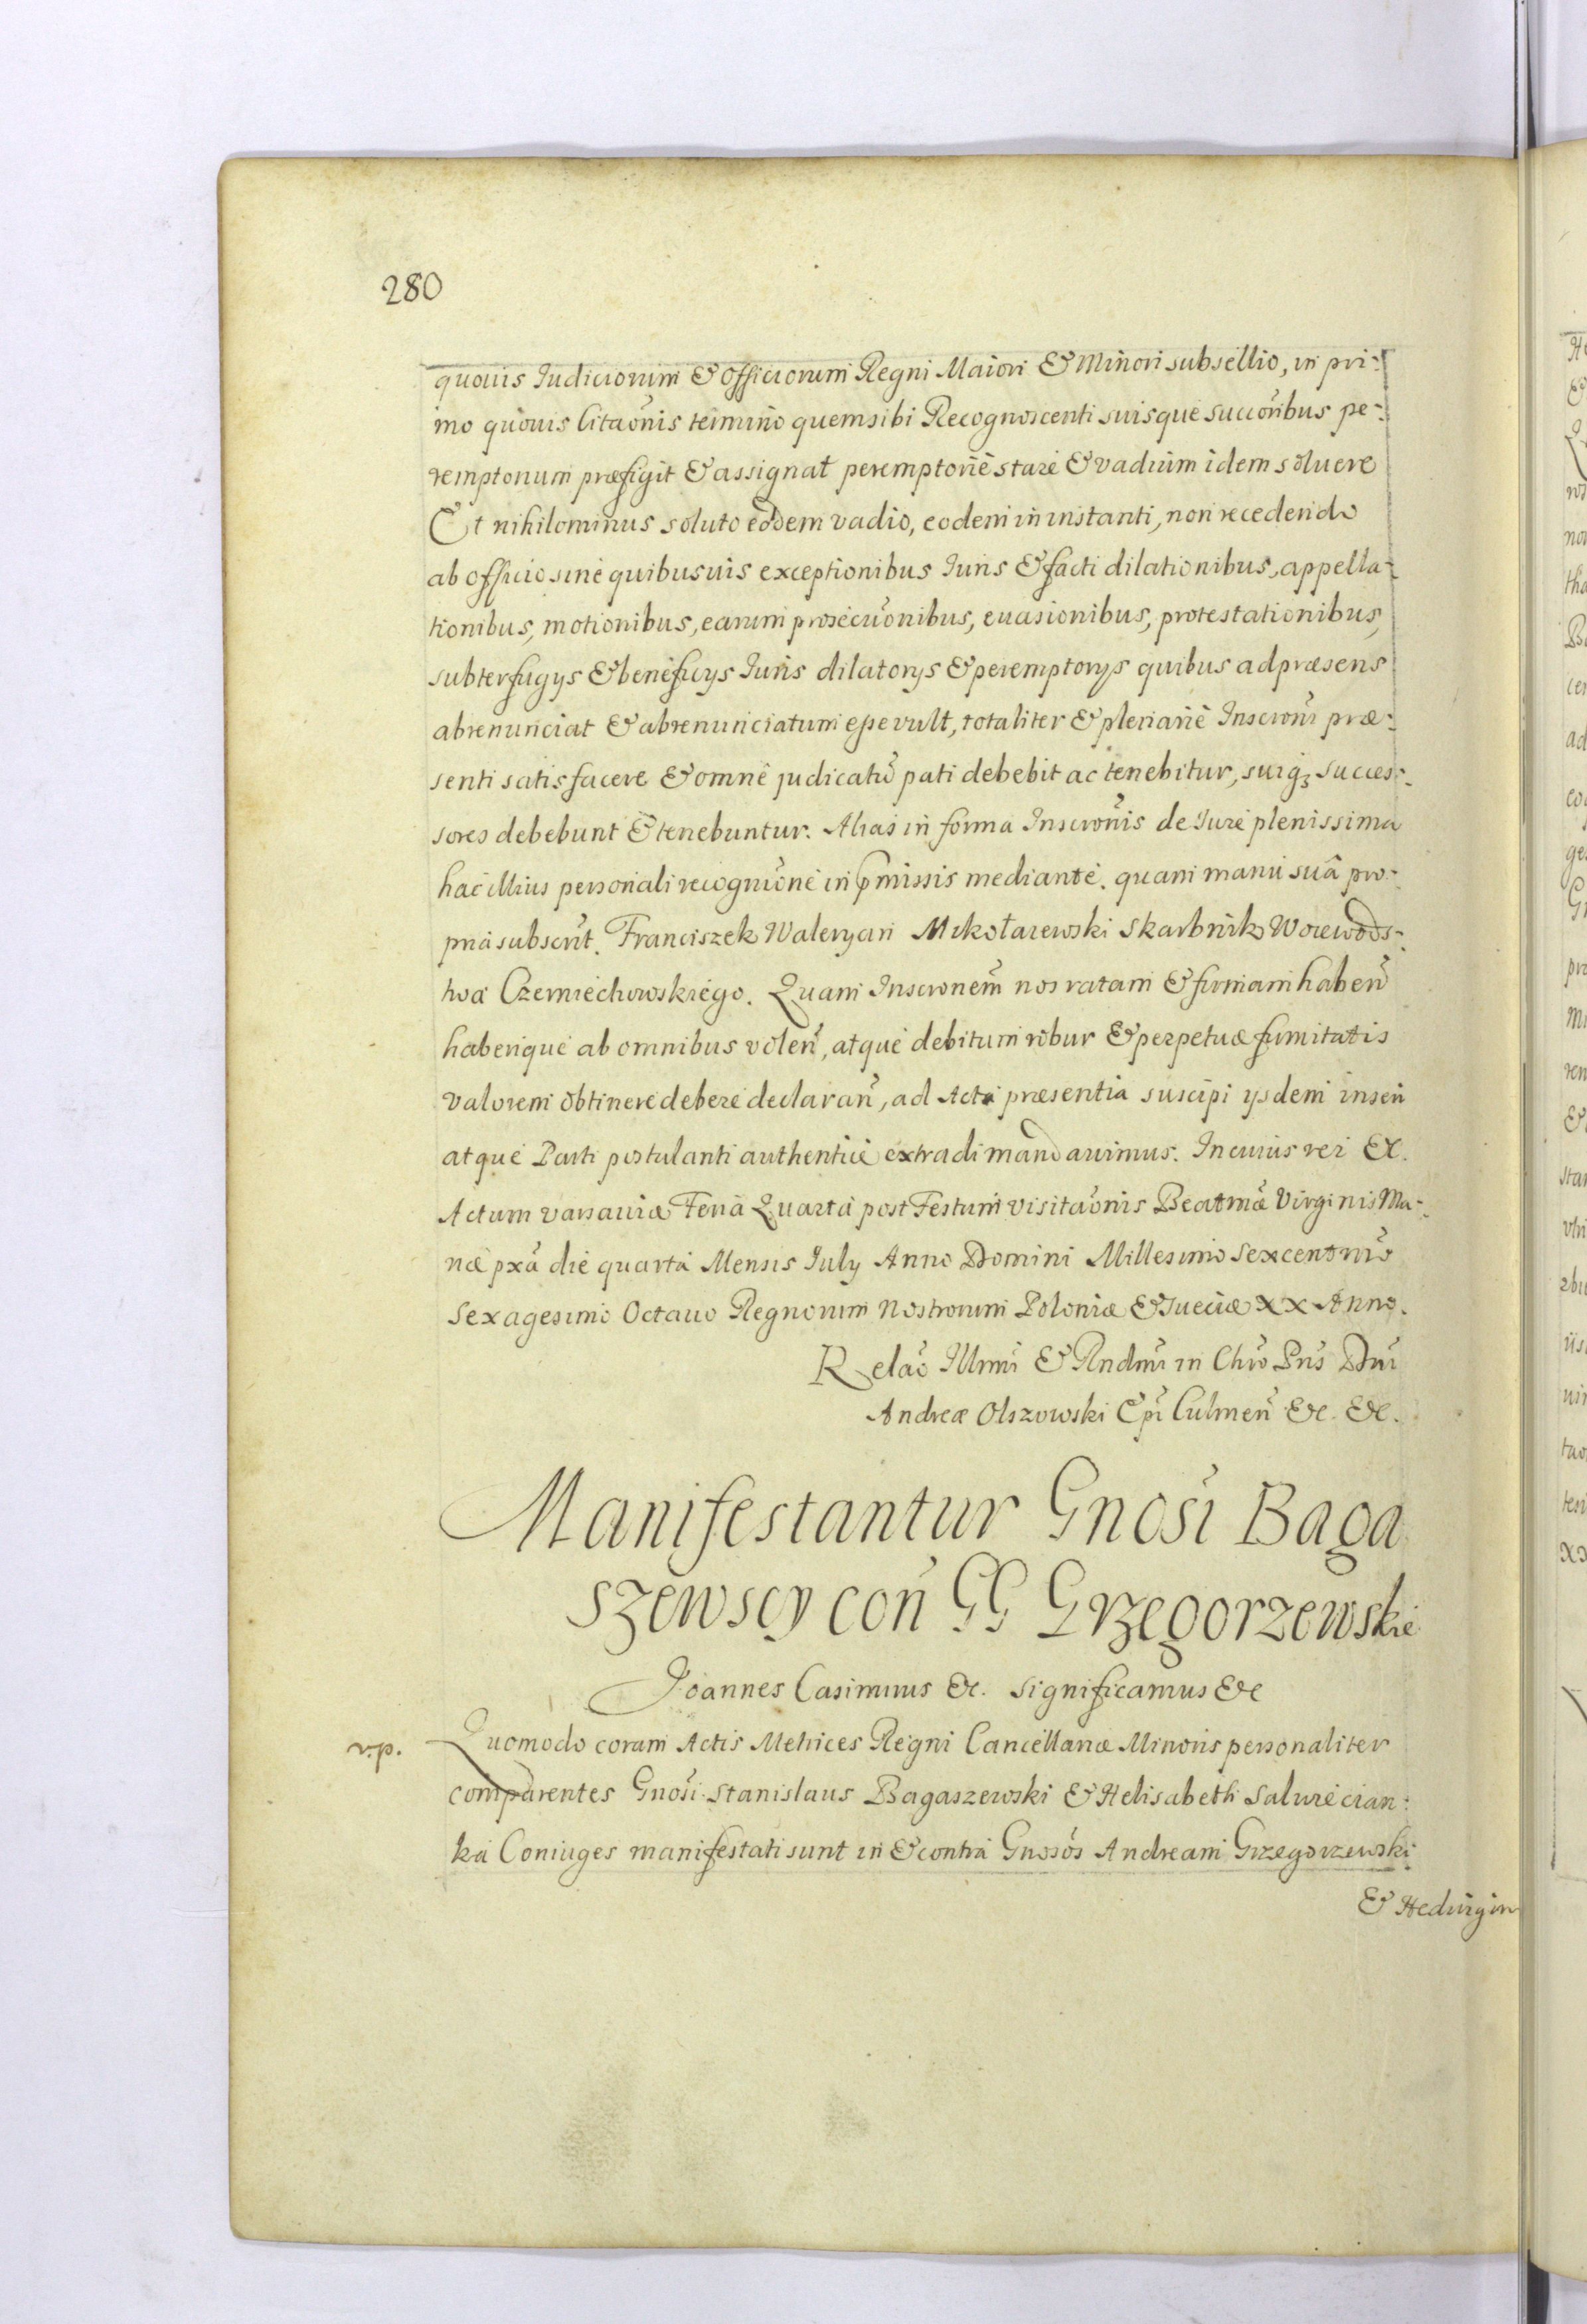 280
quouis Iudiciorum & Officiorum Regni Maiori & Minori subsellio, in pri:
mo quouis Citaõnis termino quem sibi Recognoscenti suisque succoribus pe:
remptorium præfigit & assignat peremptorie stare & vadium idem soluere
Et nihilominus soluto eodem vadio, eodem in instanti, non recedendo
ab officio sine quibusuis exceptionibus Iuris & facti dilationibus, appella:
tionibus, motionibus, earum prosecuõnibus, euasionibus, protestationibus,
subterfugys & beneficys Iuris dilatorys & peremptorys quibus ad præsens
abrenunciat & abrenunciatum esse vult, totaliter & plenarie Inscrõni præ:
senti satisfacere & omne judicatũ pati debebit ac tenebitur, suiq3 succes:
sores debebunt & tenebuntur. Alias in forma Inscrõnis de Iure plenissima
hac illius personali recogniõne in pmissis mediante. quam manu suâ pro:
pria subscrit. Franciszek Waleryan Mikołaiewski Skarbnik Woiewods:
twa Czerniechowskiego. Quam Inscronem nos ratam & firmam haben
haberique ab omnibus volen, atque debitum robur & perpetuæ firmitatis
valorem obtinere debere declaran, ad Acta præsentia suscipi ysdem inseri
atque Parti postulanti authentice extradi mandauimus. In cuius rei &.
Actum varsauiæ Feria Quarta post Festum visitaõnis Beatmæ Virginis Ma:
riæ pxâ die quarta Mensis July Anno Domini Millesimo Sexcentmo
Sexagesimo Octauo Regnorum Nostrorum Poloniæ & Sueciæ XX Anno.
Relaõ Illmi & Rndmi in Chro Pris Dni
Andreæ Olszowski Epi Culmen &c. &c.
Manifestantur Gnosi Baga
szewscy con GG Grzegorzewskie
Joannes Casimirus &c. Significamus &c
v.p.
Quomodo coram Actis Metrices Regni Cancellariæ Minoris personaliter
comparentes Gnosi Stanislaus Bagaszewski & Helisabeth Salurecian:
ka Coniuges manifestati sunt in & contra Gnosos Andream Grzegorzewski
& Heduigim